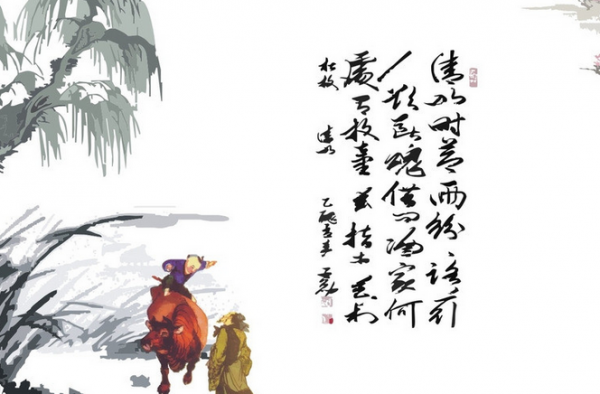 清明时节雨纷纷路上行
人欲断魂借问酒家何
处有牧童遥指杏花村
杜牧 清明 乙酉